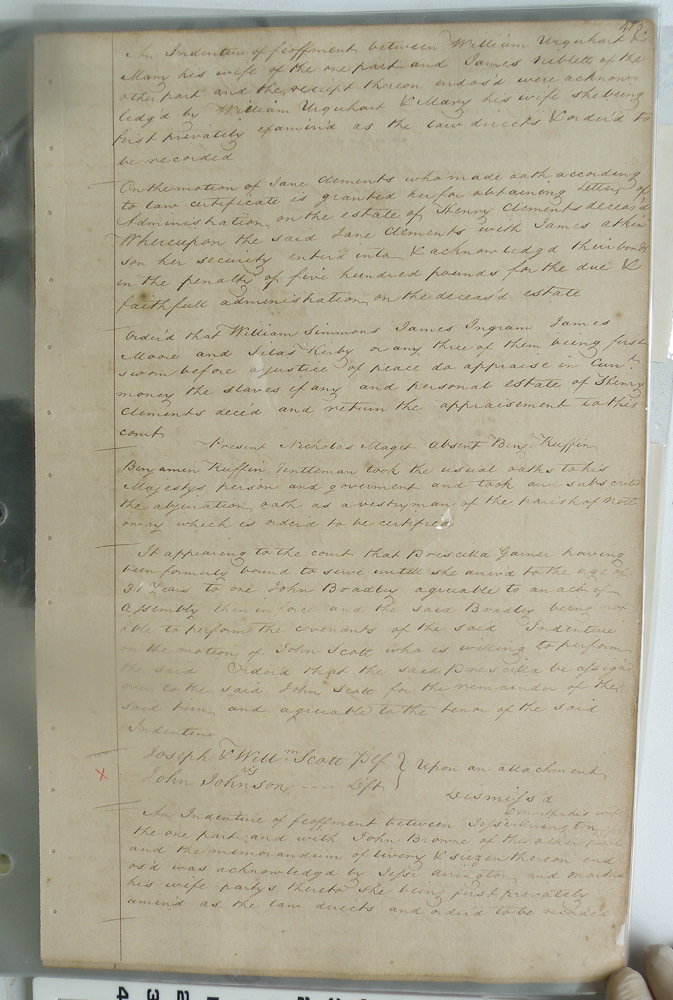 An Indenture of feoffment between William Urquhart &
Mary his wife of the one part and James Niblett of the
other part and the receipt thereon endos'd were acknow
ledg'd by William Urquhart & Mary his wife she being
first privately examin'd as the law directs & order'd to
be recorded
On the motion of Jane Clements who made oath according
to law certificate is granted her for obtainong letters of
Administration on the estate of Henry Clements deceas'd
Whereupon the said Jane Clements with James atkin
son her security enterd into & acknowledg'd their bond
in the penalty of five hundred pounds for the due &
faithfull administration on the deceas'd estate
Order'd that William Simmons James Ingram James
Moore and Silas Kirby or any three of them being first
sworn before a justice of peace do appraise in Curr.t
money the slaves if any and personal estate of Henry
Clements deced and return the appraisement to this
court
Present Nicholas Maget absent Ben.n Ruffin
Benjamin Ruffin Gentleman took the usual oaths to his
Majestys person and goverment and took and subscribd
the abjuration oath as a vestryman of the parish of Nott
oway which is order'd to be certified
It appearing to the court that Priscilla Garner having
been formerly bound to serve untill she arriv'd to the age of
31 Years to one John Bradley agreuable to an act of
assembly then in force and the said Bradley being not
able to perform the covenants of the said Indenture
on the motion of John Scott who is willing to perform
the said Order'd that the said Priscilla be assign'd
over to the said John Scott for the remainder of the
said term and agreuable to the tenor of the said
Indenture
Joseph & Will.m Scott Plf } Upon an attachment
vs
John Johnson ---- Deft
Dismiss'd
& his wife
An Indenture of feoffment between Jesse Arrington
the one part and with John Browne of the other part
and the memorandum of livery & siezen thereon end
os'd was acknowledgd by Jesse Arrington and Martha
his wife partys thereto she being first privately
amind as the law directs and order'd to be recorded
4 3 2 1